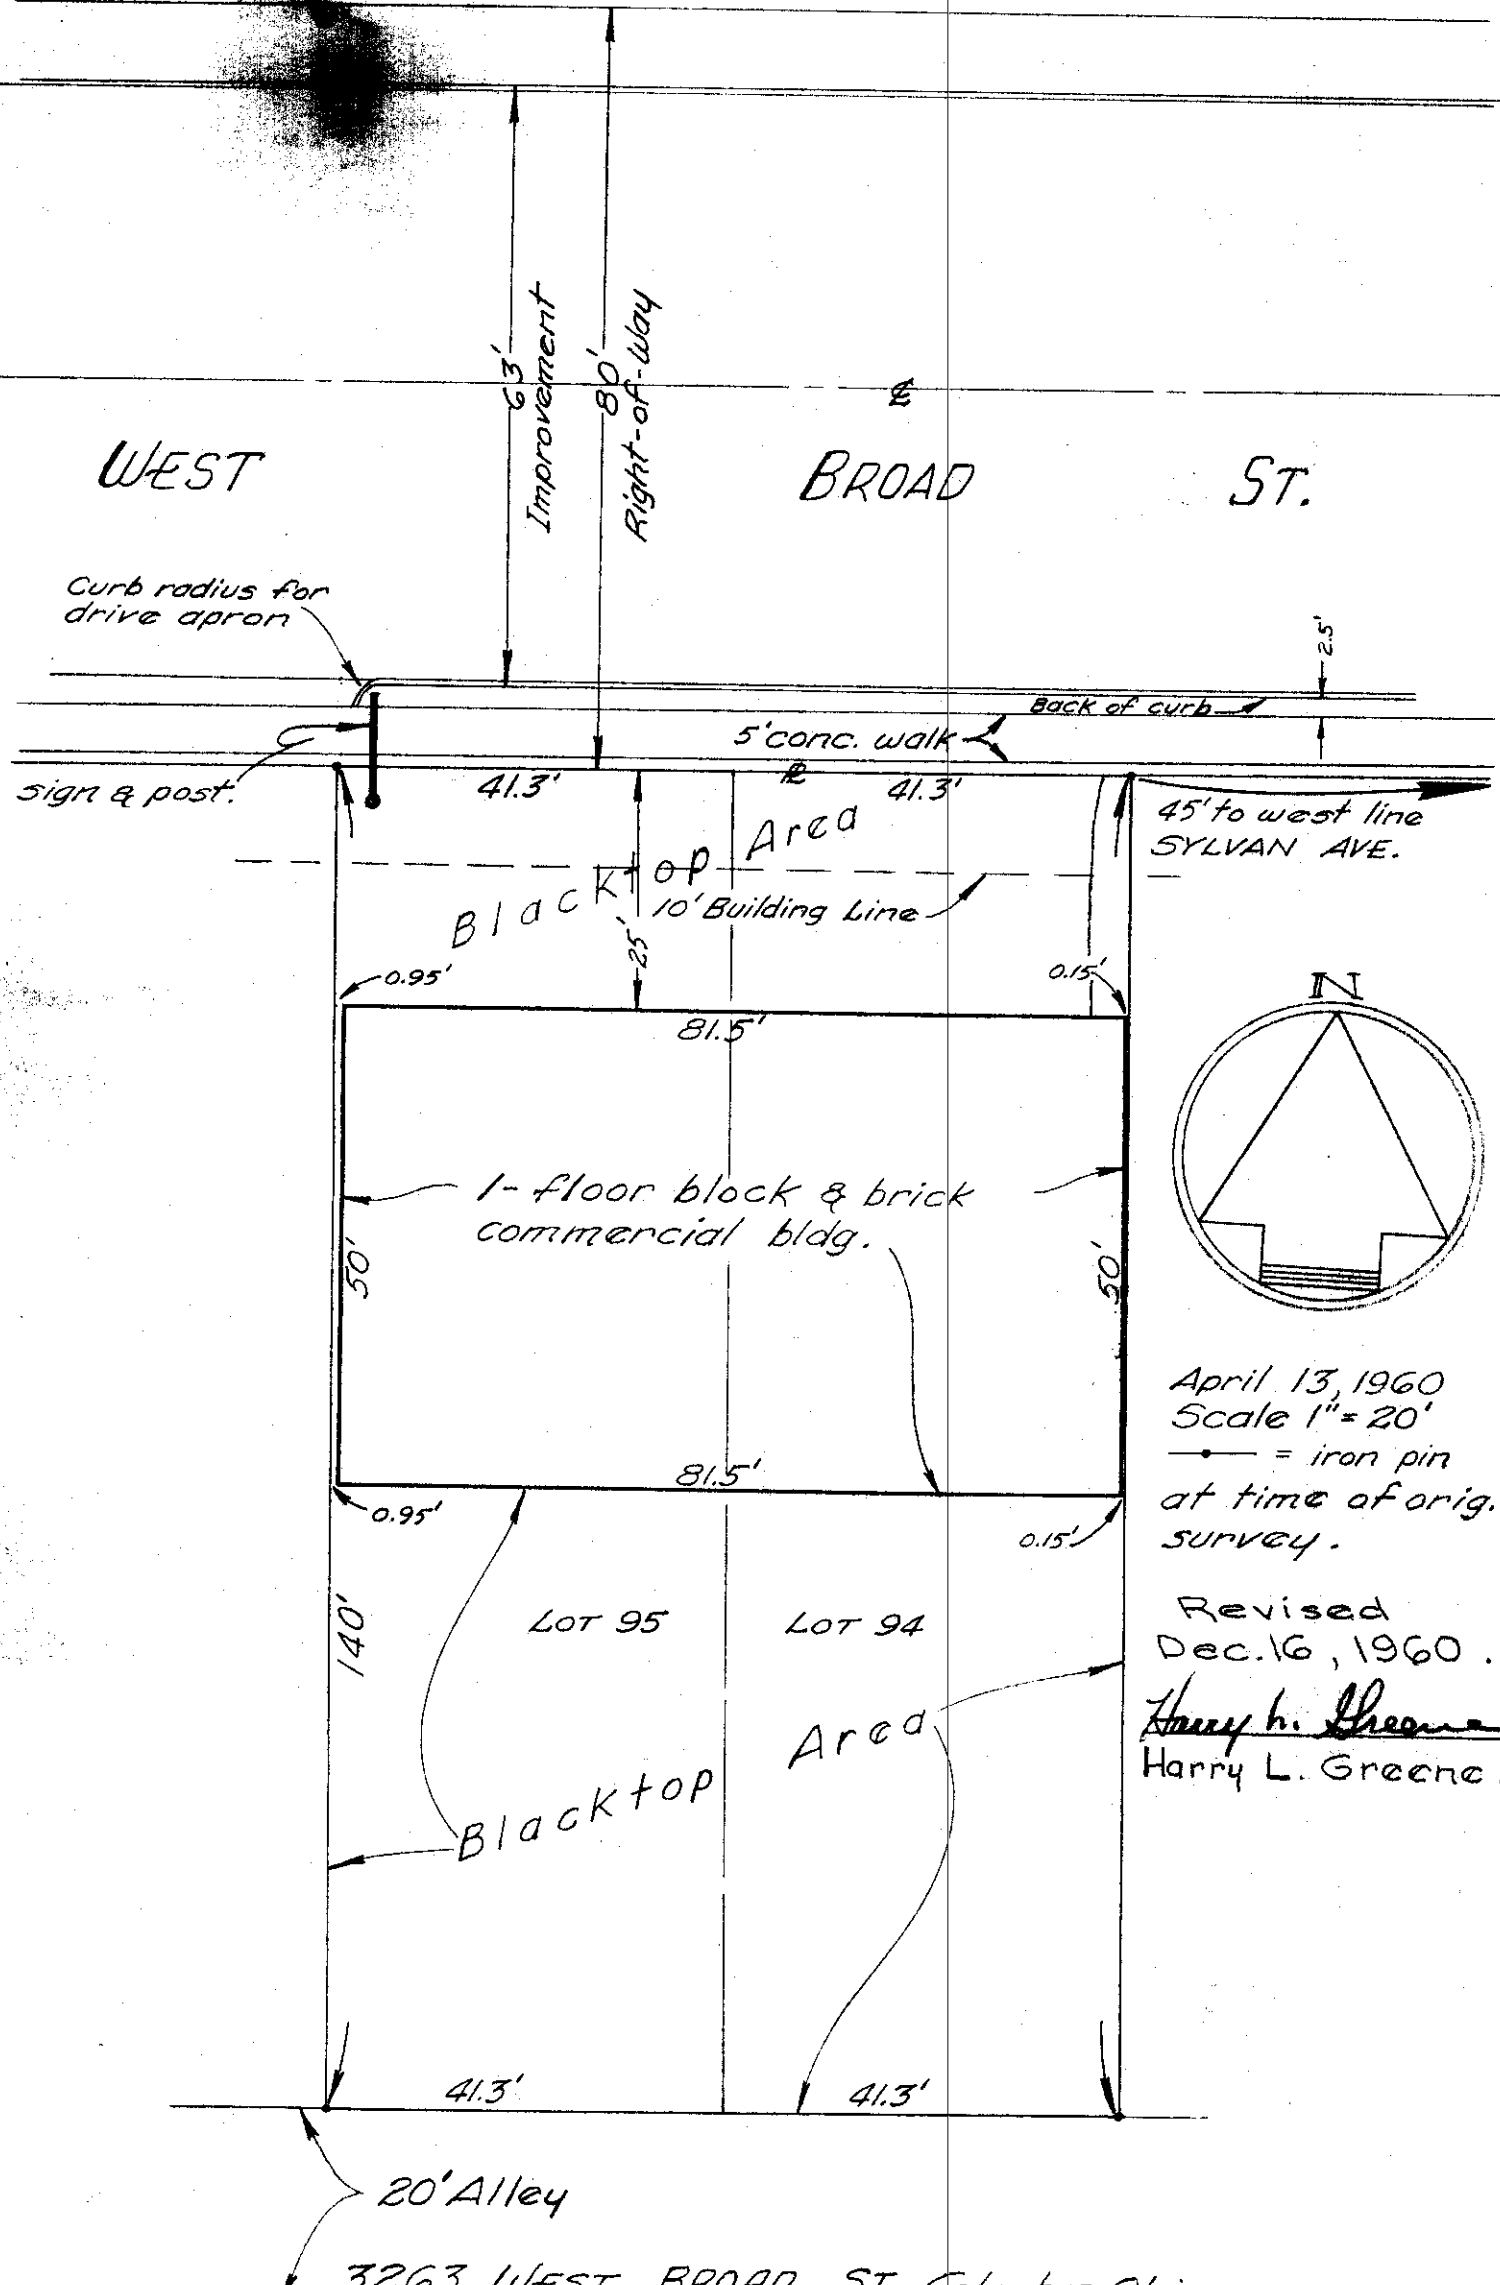 63'
Improvement
80'
Right-of-Way
℄
WEST BROAD ST.
Curb radius for
drive apron
2.5'
Back of curb
5' conc. walk
sign & post.
41.3'
℞
41.3'
45' to west line
SYLVAN AVE.
Blacktop Area
10' Building Line
25'
0.95'
0.15'
N
81.5'
1-floor block & brick
commercial bldg.
50'
50'
April 13, 1960
Scale 1" = 20'
= iron pin
at time of orig.
survey.
81.5'
0.95'
0.15'
140'
LOT 95
LOT 94
Revised
Dec. 16, 1960.
Harry L. Greene
Harry L. Greene
Blacktop Area
41.3'
41.3'
20' Alley
3263 WEST BROAD ST.